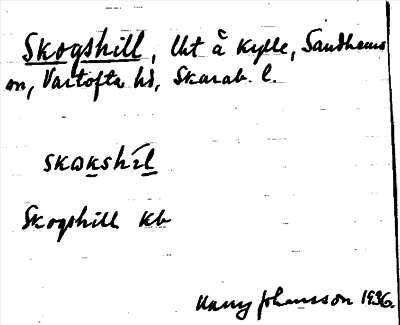 Skogshill, Uht å Kylle, Sandhems
sn, Vartofta hd, Skarab. l.
skωkshìl
Skogshill kb
Harry Johansson 1936.